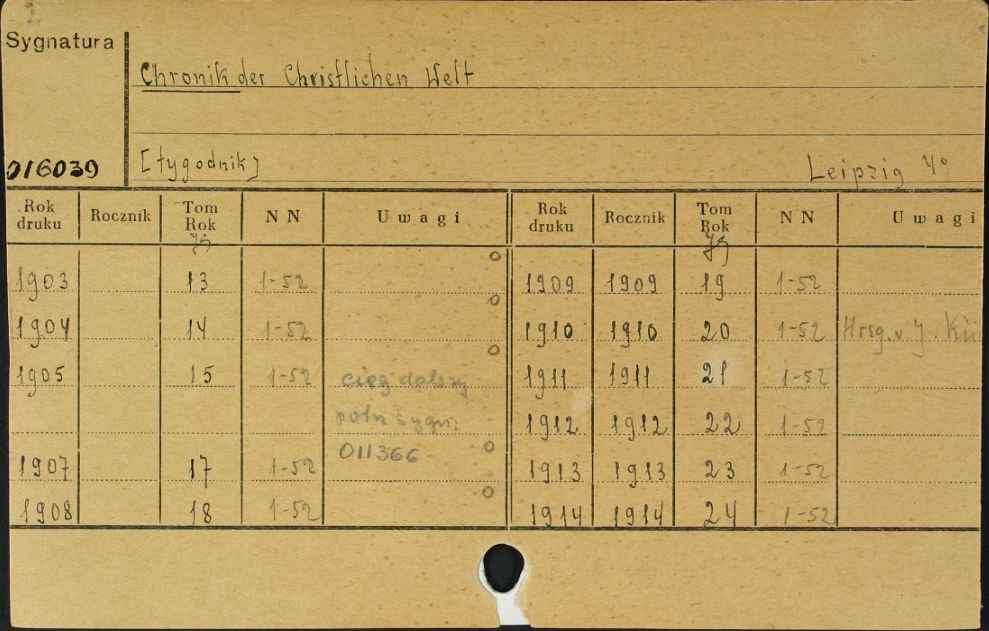 2
Sygnatura
Chronik der Christlichen Welt
016039
[tygodnik]
Leipzig 4°
Rok druku Rocznik Tom Rok NN Uwagi Rok druku Rocznik Tom Rok NN Uwagi
Jg Jg
1903 13 1-52 1909 1909 19 1-52
1904 14 1-52 1910 1910 20 1-52 Hrsg. v J.
1905 15 1-52 ciąg dalszy 1911 1911 21 1-52
patrz sygn. 1912 1912 22 1-52
1907 17 1-52 011366 1913 1913 23 1-52
1908 18 1-52 1914 1914 24 1-52